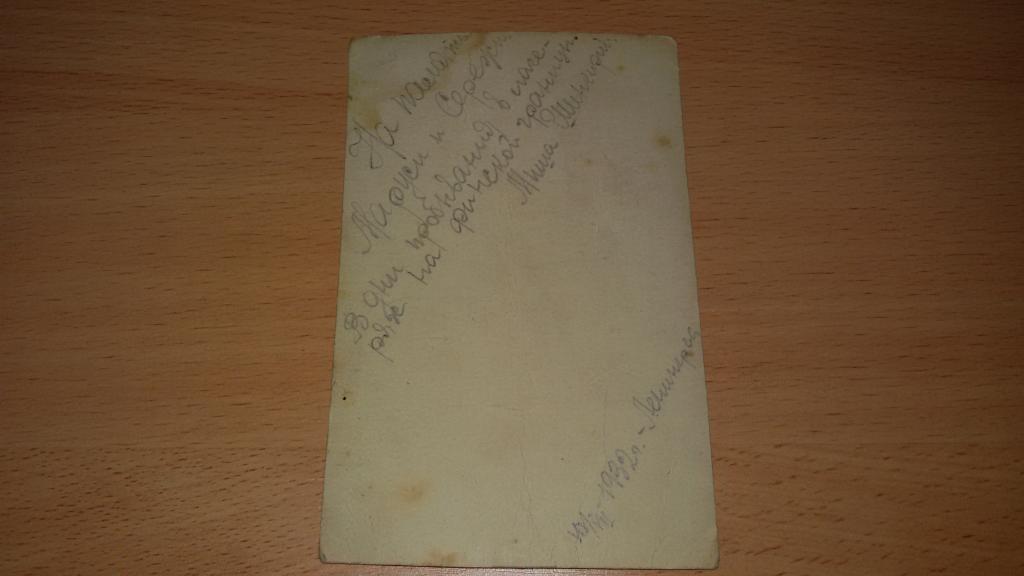 На память
Маруси и Сереж
В дни пребывания в лаге-
рях на финской границы
Миша
1932 г. - Ленинград